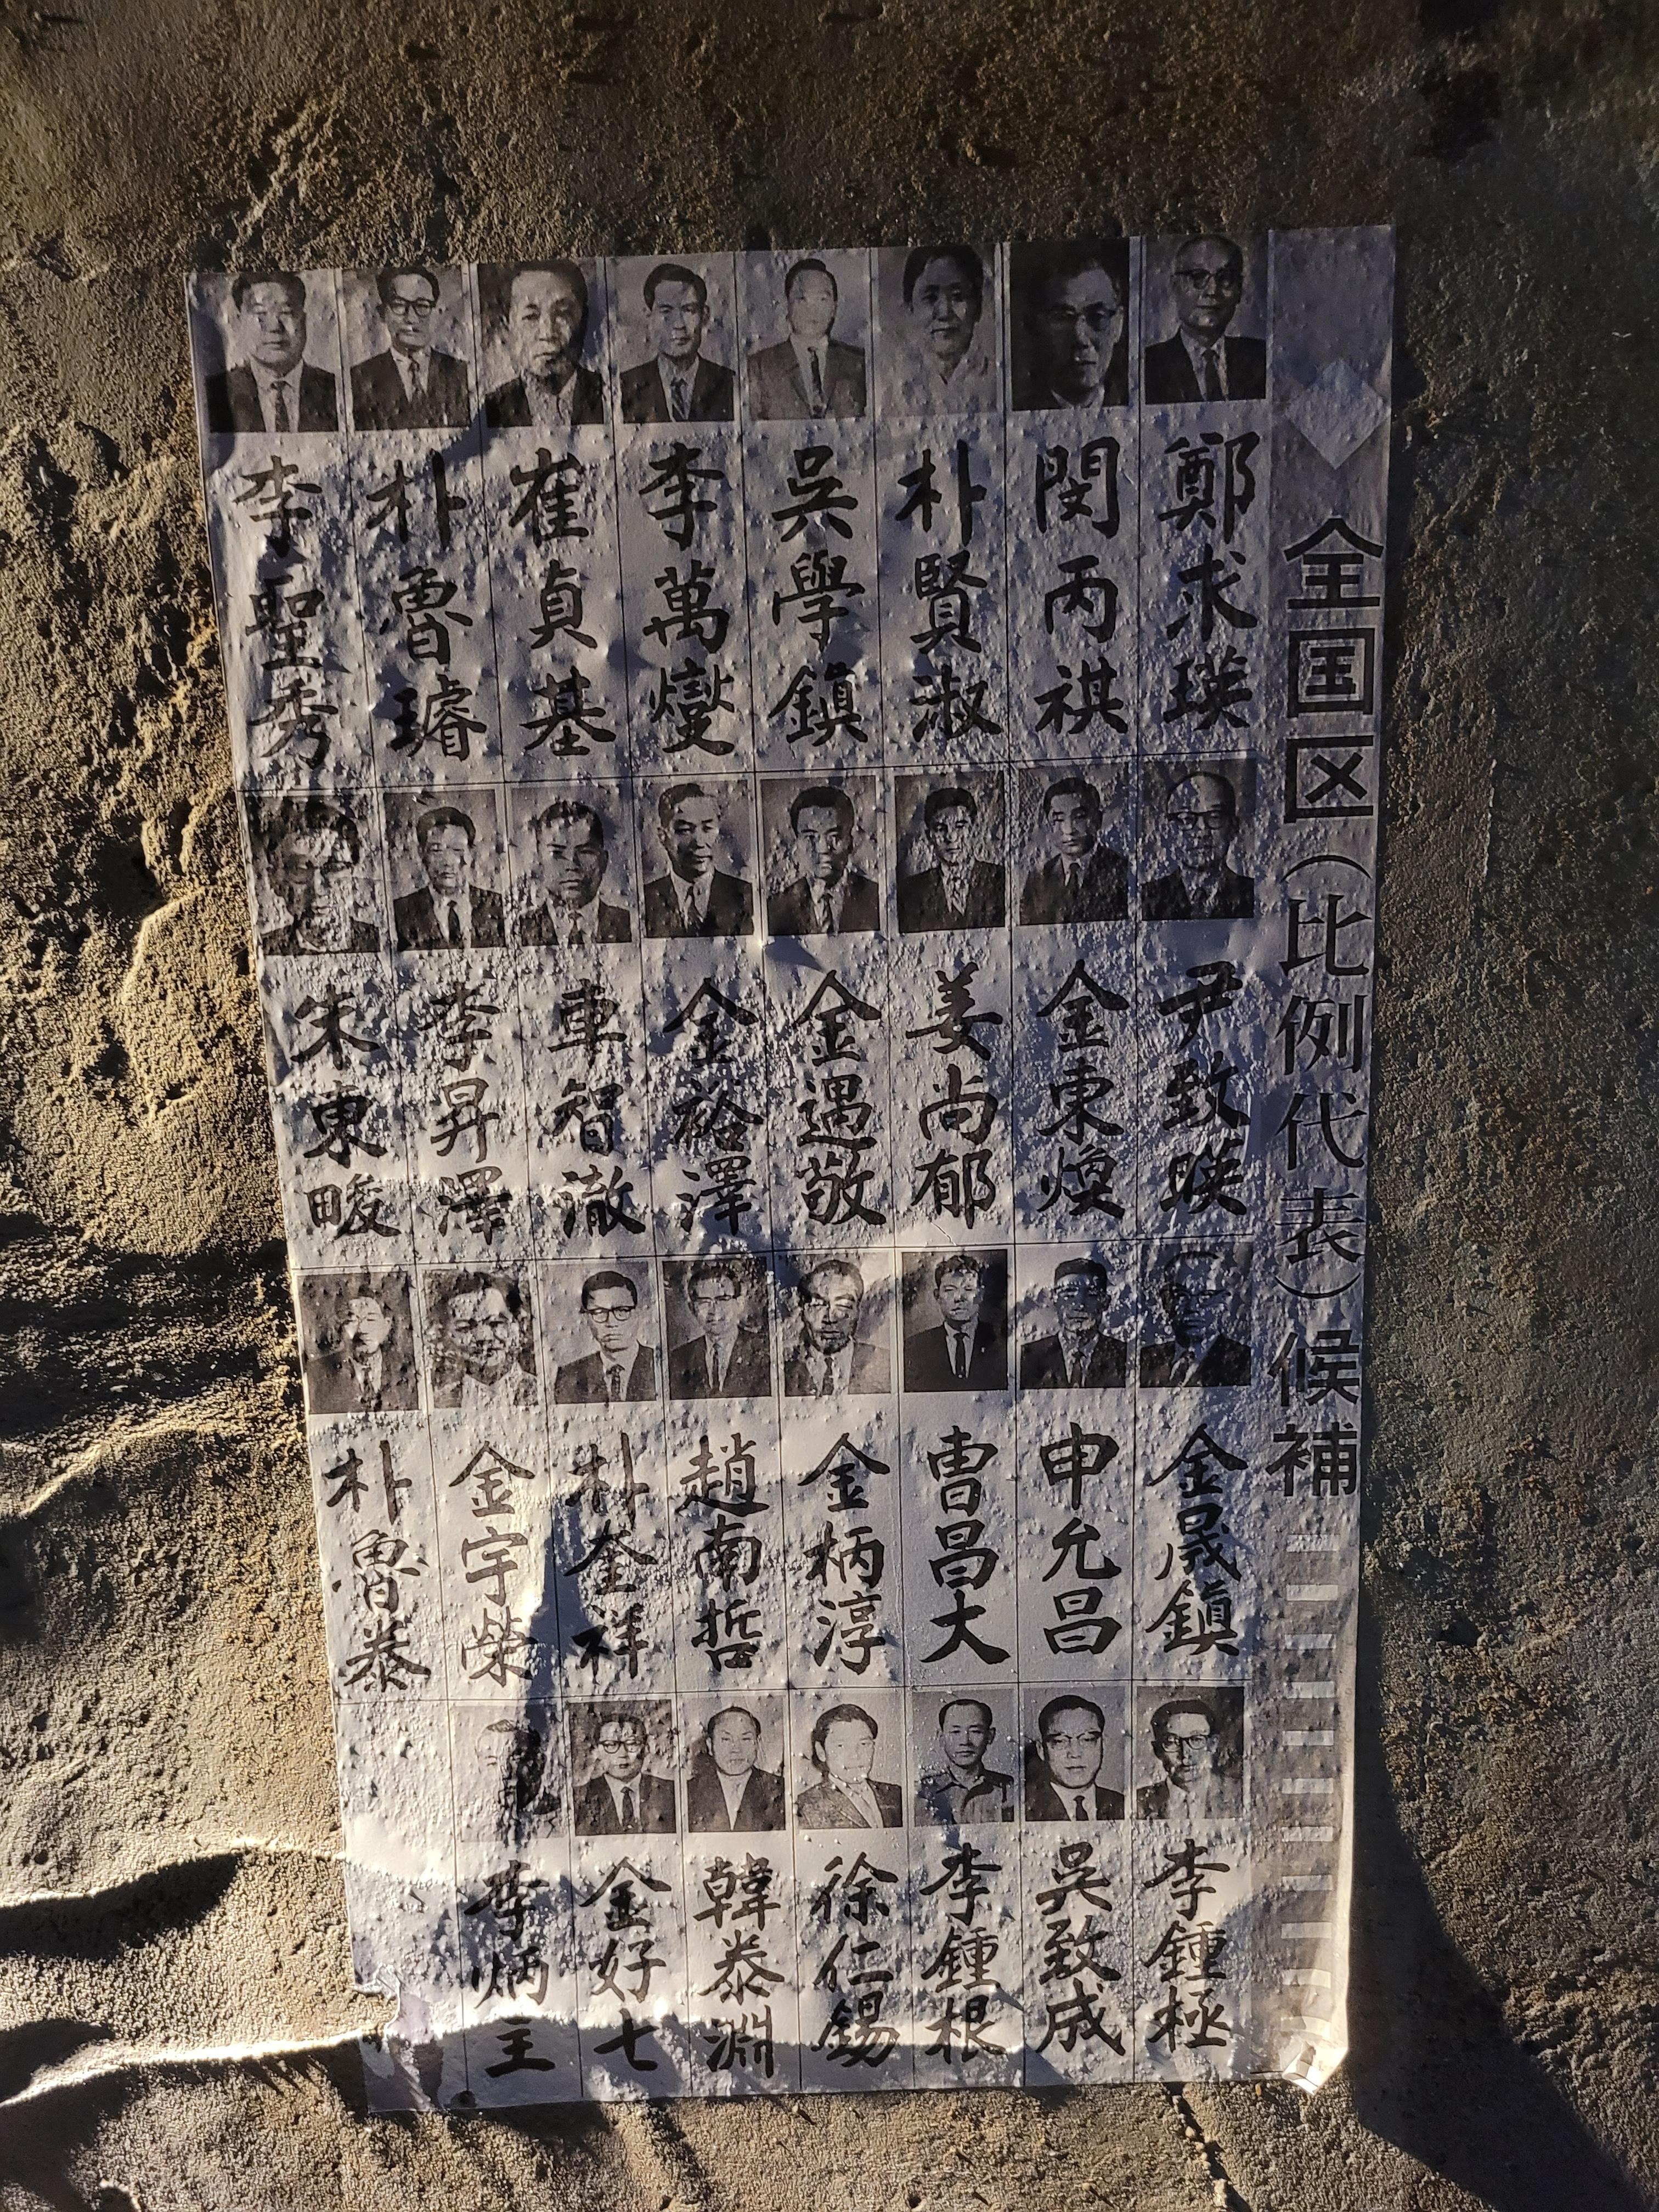 全国区(比例代表)候補
鄭求瑛
閔丙祺
朴賢淑
吳學鎭
李萬燮
崔貞基
朴魯璿
李聖秀
尹致暎
金東煥
姜尙郁
金遇敬
金裕澤
車智澈
李昇澤
朱東畯
金晟鎭
申允昌
曺昌大
金柄淳
趙南哲
朴奎祥
金宇榮
朴魯泰
李鍾極
吳致成
李鍾根
徐仁錫
韓泰淵
金好七
李炳主